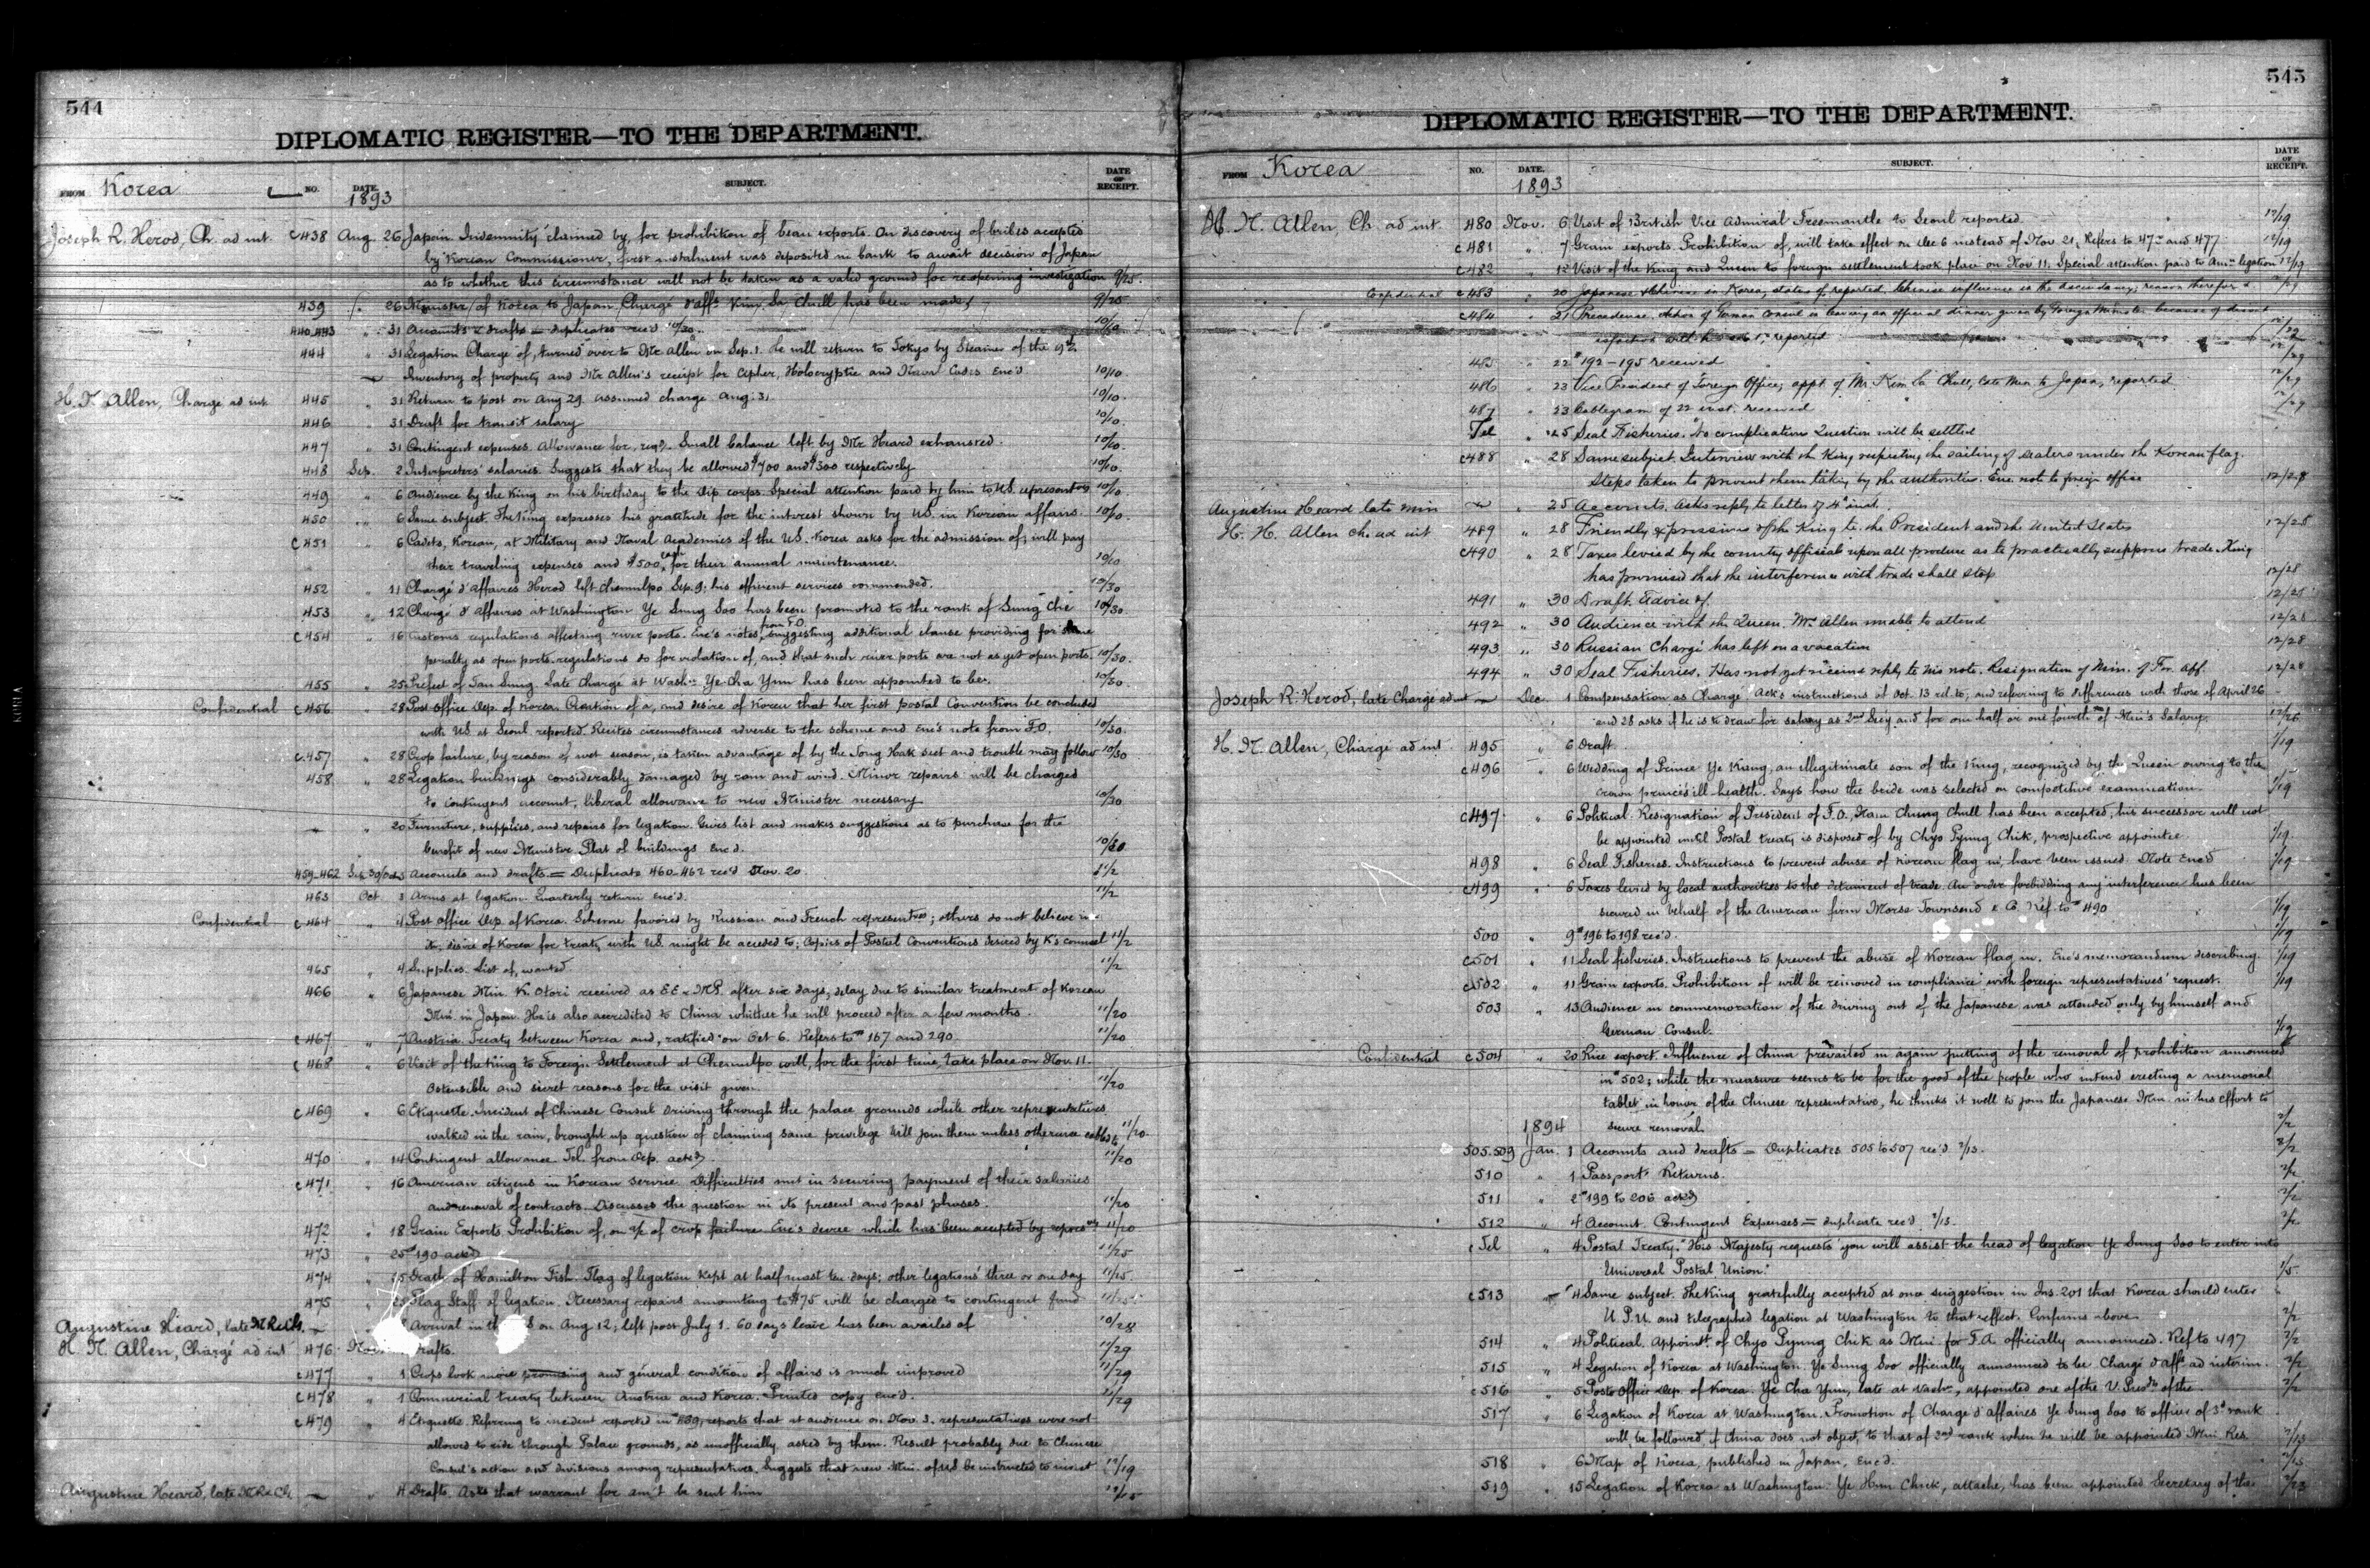 544
DIPLOMATIC REGISTER—TO THE DEPARTMENT.
FROM Korea NO. DATE. SUBJECT. DATE OF RECEIPT.
1893
Joseph R. Herod, Ch. ad int. c438 Aug. 26 Japan Indemnity claimed by, for prohibition of bean exports. On discovery of bribes accepted
by Korean Commissioner, first instalment was deposited in bank to await decision of Japan
as to whether this circumstance will not be taken as a valid ground for reopening investigation 9/25.
439 " 26 Minister of Korea to Japan, Chargé d'affs Kim Sa Chull has been made 9/25
440-443 " 31 Accounts & drafts = duplicates rec'd 10/30. 10/10
444 " 31 Legation Charge of, turned over to Mr Allen on Sep. 1. He will return to Tokyo by Steamer of the 9th.
Inventory of property and Mr Allen's receipt for Cipher, Holocryptic and Naval Codes Enc'd 10/10.
H. N. Allen, Charge ad int. 445 " 31 Return to post on Aug 29. Assumed charge Aug. 31 10/10.
446 " 31 Draft for transit salary 10/10.
447 " 31 Contingent expenses. Allowance for, req'd. Small balance left by Mr Heard exhausted. 10/10.
448 Sep. 2 Interpreters' salaries. Suggests that they be allowed $700 and $300 respectively 10/10.
449 " 6 Audience by the King on his birthday to the Dip. corps. Special attention paid by him to U.S. representatives 10/10
450 " 6 Same subject. The King expresses his gratitude for the interest shown by U.S. in Korean affairs. 10/10.
c451 " 6 Cadets, Korean, at Military and Naval Academies of the U.S. Korea asks for the admission of; will pay
their traveling expenses and $500 each for their annual maintenance. 10/10
452 " 11 Chargé d'affaires Herod left Chemulpo Sep. 9; his efficient services commended. 10/30
453 " 12 Chargé d'Affaires at Washington Ye Sung Soo has been promoted to the rank of Sung Che 10/30.
c454 " 16 Customs regulations affecting river ports. Enc's notes from F.O. suggesting additional clause providing for same
penalty as open ports regulations do for violation of, and that such river ports are not as yet open ports. 10/30.
455 " 25 Prefect of Tan Sung. Late Chargé at Wash. Ye Cha Yun has been appointed to be. 10/30.
Confidential c456 " 28 Post Office Dep. of Korea. Creation of a, and desire of Korea that her first postal Convention be concluded
with U.S. at Seoul reported. Recites circumstances adverse to the scheme and enc's note from F.O. 10/30.
c457 " 28 Crop failure, by reason of wet season, is taken advantage of by the Tong Hak sect and trouble may follow 10/30
458 " 28 Legation buildings considerably damaged by rain and wind. Minor repairs will be charged
to contingent account; liberal allowance to new Minister necessary 10/30
" 20 Furniture, supplies, and repairs for legation. Gives list and makes suggestions as to purchase for the
benefit of new Minister. Plat of buildings Enc'd. 10/30
459-462 Accounts and drafts = Duplicate 460-462 rec'd Nov. 20. 11/2
463 Oct 3 Arms at legation. Quarterly return Enc'd. 11/2
Confidential c464 " 4 Post office Dep. of Korea. Scheme favored by Russian and French represent'ves; others do not believe in
it; desire of Korea for treaty with U.S. might be acceded to; Copies of Postal Conventions desired by K's counsel 11/2
465 " 4 Supplies. List of, wanted 11/2
466 " 6 Japanese Min. K. Otori received as E.E. & M.P. after six days; delay due to similar treatment of Korean
Min. in Japan. He is also accredited to China whither he will proceed after a few months. 11/20
c467 " 7 Austria. Treaty between Korea and, ratified on Oct 6. Refers to # 167 and 290 11/20
c468 " 6 Visit of the King to Foreign Settlement at Chemulpo will, for the first time, take place on Nov. 11.
Ostensible and secret reasons for the visit given. 11/20
c469 " 6 Etiquette. Incident of Chinese Consul driving through the palace grounds while other representatives
walked in the rain, brought up question of claiming same privilege. Will join them unless otherwise 11/20.
470 " 14 Contingent allowance. Tel. from Dep. ack'd 11/20
c471 " 16 American citizens in Korean service. Difficulties met in securing payment of their salaries
and renewal of contracts. Discusses the question in its present and past phases. 11/20
472 " 18 Grain Exports. Prohibition of, on a/c of crop failure. Enc's decree which has been accepted by repres'ves 11/20
473 " 25 # 190 ack'd 11/25
474 " 25 Death of Hamilton Fish. Flag of legation kept at half mast ten days; other legations' three or one day
475 Flag Staff of legation. Necessary repairs amounting to $75 will be charged to contingent fund
Augustine Heard, late M.R. & C.G. Arrival in the on Aug 12; left post July 1. 60 days leave has been availed of 10/28
H. N. Allen, Chargé ad int 476 Drafts. 11/29
c477 " 1 Crops look more promising and general condition of affairs is much improved 11/29
c478 " 1 Commercial treaty between Austria and Korea. Printed copy enc'd. 11/29
c479 " 4 Etiquette. Referring to incident reported in reports that at audience on Nov. 3. representatives were not
allowed to ride through Palace grounds, as unofficially asked by them. Result probably due to Chinese
Consul's action and divisions among representatives. Suggests that new Min. of U.S. be instructed to insist 12/19
Augustine Heard, late " 4 Drafts. Asks that warrant for am't be sent him
545
DIPLOMATIC REGISTER—TO THE DEPARTMENT.
FROM Korea NO. DATE. SUBJECT. DATE OF RECEIPT.
1893
H. N. Allen, Ch. ad int. 480 Nov. 6 Visit of British Vice Admiral Freemantle to Seoul reported. 12/19
c481 " 7 Grain exports. Prohibition of, will take effect on Dec 6 instead of Nov. 21. Refers to 472 and 477. 12/19
c482 " 12 Visit of the King and Queen to foreign settlement took place on Nov 11. Special attention paid to Am. legation 12/19
Confidential c483 " 20 Japanese & Chinese in Korea, status of, reported. Chinese influence in the ascendancy; reason therefor
c484 " 21 Precedence. Action of German Consul in leaving an official dinner given by Foreign Minister because of
reported
485 " 22 # 192-195 received 12/29
486 " 23 Vice President of Foreign Office; appt. of Mr. Kim Sa Chull, late Min. to Japan, reported 12/29
487 " 23 Cablegram of 22 inst. received
Tel " 25 Seal Fisheries. No complication Question will be settled
c488 " 28 Same subject. Interview with the King respecting the sailing of sealers under the Korean flag.
Steps taken to prevent them taking by the authorities. Enc. note to foreign office 12/28
Augustine Heard late Min " 25 Accounts. Asks reply to letter of 4" inst.
H. N. Allen ch. ad int 489 " 28 Friendly expressions of the King to the President and the United States 12/28
c490 " 28 Taxes levied by the country officials upon all produce as to practically suppress trade. King
has promised that the interference with trade shall stop 12/28
491 " 30 Draft. Advice of. 12/28
492 " 30 Audience with the Queen. Mrs Allen unable to attend 12/28
493 " 30 Russian Chargé has left on a vacation 12/28
494 " 30 Seal Fisheries. Has not yet received reply to his note. Resignation of Min. of For. Aff. 12/28
Joseph R. Herod, late Chargé ad int Dec. 1 Compensation as Chargé. Ack's instructions of Oct. 13 rel. to; and referring to differences with those of April 26
and 28 asks if he is to draw for salary as 2nd Sec'y and for one half or one fourth of Min's Salary. 12/26
H. N. Allen, Chargé ad int 495 " 6 Draft. 1/19
c496 " 6 Wedding of Prince Ye Kiung, an illegitimate son of the King, recognized by the Queen owing to the
crown prince's ill-health. Says how the bride was selected on competitive examination. 1/19
c497 " 6 Political. Resignation of President of F.O., Nam Chung Chull has been accepted; his successor will not
be appointed until Postal treaty is disposed of by Chyo Pyung Chik, prospective appointee. 1/19.
498 " 6 Seal Fisheries. Instructions to prevent abuse of Korean flag in, have been issued. Note Enc'd 1/19
c499 " 6 Taxes levied by local authorities to the detriment of trade. An order forbidding any interference has been
secured in behalf of the American firm Morse Townsend & Co. Ref. to # 490 1/19
500 " 9 # 196 to 198 rec'd. 1/19
c501 " 11 Seal fisheries. Instructions to prevent the abuse of Korean flag in. Enc's memorandum describing. 1/19
c502 " 11 Grain exports. Prohibition of will be removed in compliance with foreign representatives' request. 1/19
503 " 13 Audience in commemoration of the driving out of the Japanese was attended only by himself and
German Consul. 1/19
Confidential c504 " 20 Rice export. Influence of China prevailed in again putting off the removal of prohibition announced
in # 502; while the measure seems to be for the good of the people who intend erecting a memorial
tablet in honor of the Chinese representative, he thinks it well to join the Japanese Min. in his effort to
1894 secure removal. 2/2
505-509 Jan. 1 Accounts and drafts = Duplicates 505 to 507 rec'd 2/13. 2/2
510 " 1 Passport Returns. 2/2
511 " 2 # 199 to 206 ack'd 2/2
512 " 4 Account. Contingent Expenses = duplicate rec'd. 2/13. 2/2
c Tel " 4 Postal Treaty. "His Majesty requests you will assist the head of legation Ye Sung Soo to enter into
Universal Postal Union." 1/5.
c513 " 4 Same subject. The King gratefully accepted at once suggestion in Ins. 201 that Korea should enter
U.P.U. and telegraphed legation at Washington to that effect. Confirms above 2/2
514 " 4 Political. Appoint. of Chyo Pyung Chik as Min. for F.A. officially announced. Ref to 497 2/2
515 " 4 Legation of Korea at Washington. Ye Sung Soo officially announced to be Chargé d'affs ad interim. 2/2
c516 " 5 Post Office Dep. of Korea. Ye Cha Yun, late at Wash., appointed one of the V. Pres'ds of the 2/2
517 " 6 Legation of Korea at Washington. Promotion of Chargé d'affaires Ye Sung Soo to office of 3d rank
will be followed, if China does not object, to that of 2nd rank when he will be appointed Min. Res. 2/13
518 " 6 Map of Korea, published in Japan, Enc'd. 2/13
519 " 15 Legation of Korea at Washington. Ye Hun Chick, attache, has been appointed Secretary of the 2/23